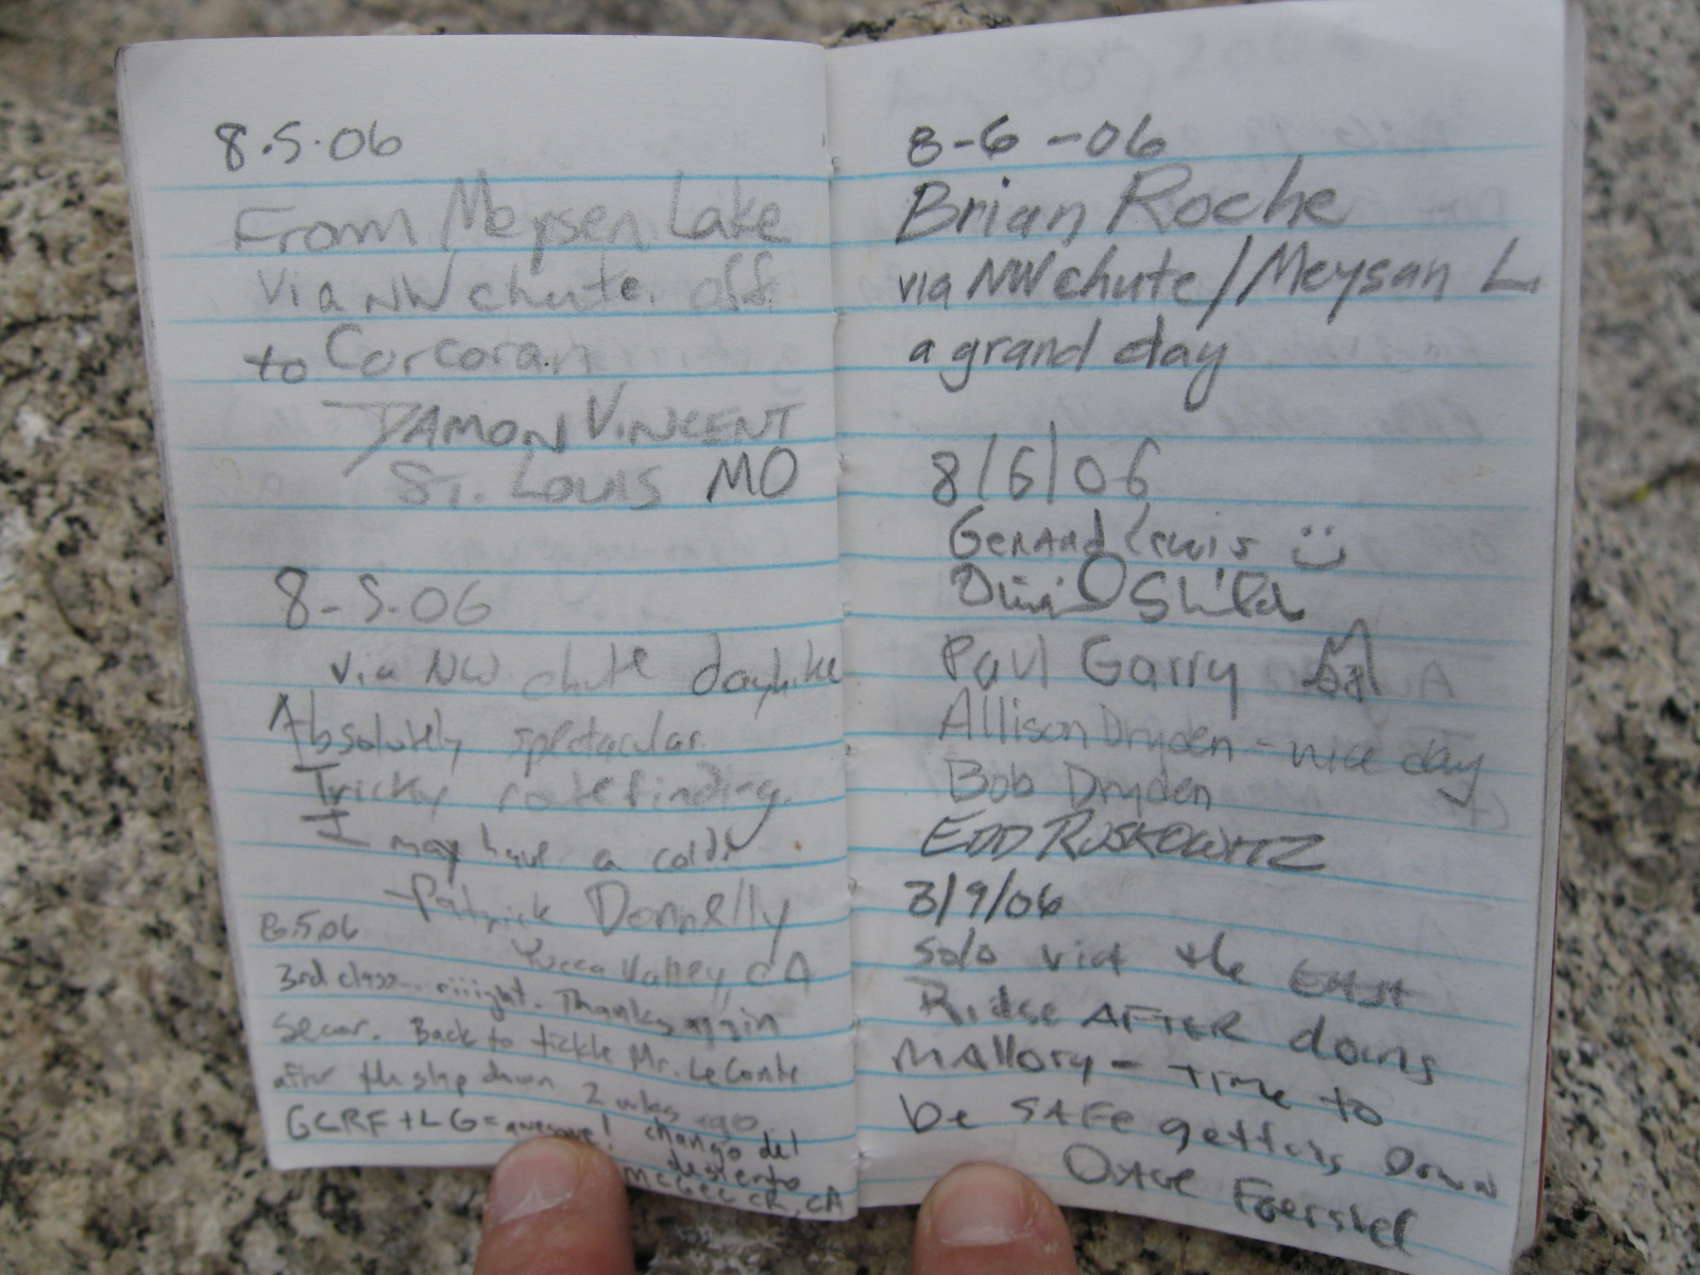 8.5.06
From Meysen Lake
via NW chute. off
to Corcoran.
DAMON VINCENT
ST. LOUIS MO
8-5-06
via NW chute dayhike
Absolutely spectacular.
Tricky routefinding.
I may have a cold.
-Patrick Donnelly
Yucca Valley, CA
8.5.06
3rd class... riiight. Thanks again
Secor. Back to tickle Mr. LeConte
after the step down 2 weeks ago
GCRF + LG = awesome! chango del
desierto
MCGEE CR, CA
8-6-06
Brian Roche
via NW chute / Meysan L.
a grand day
8/6/06
GERARD Lewis
Paul Garry
Allison Dryden - nice day
Bob Dryden
EDD RUSKOWITZ
8/9/06
Solo via the East
Ridge AFTER doing
MAllory - Time to
be SAFE getting Down